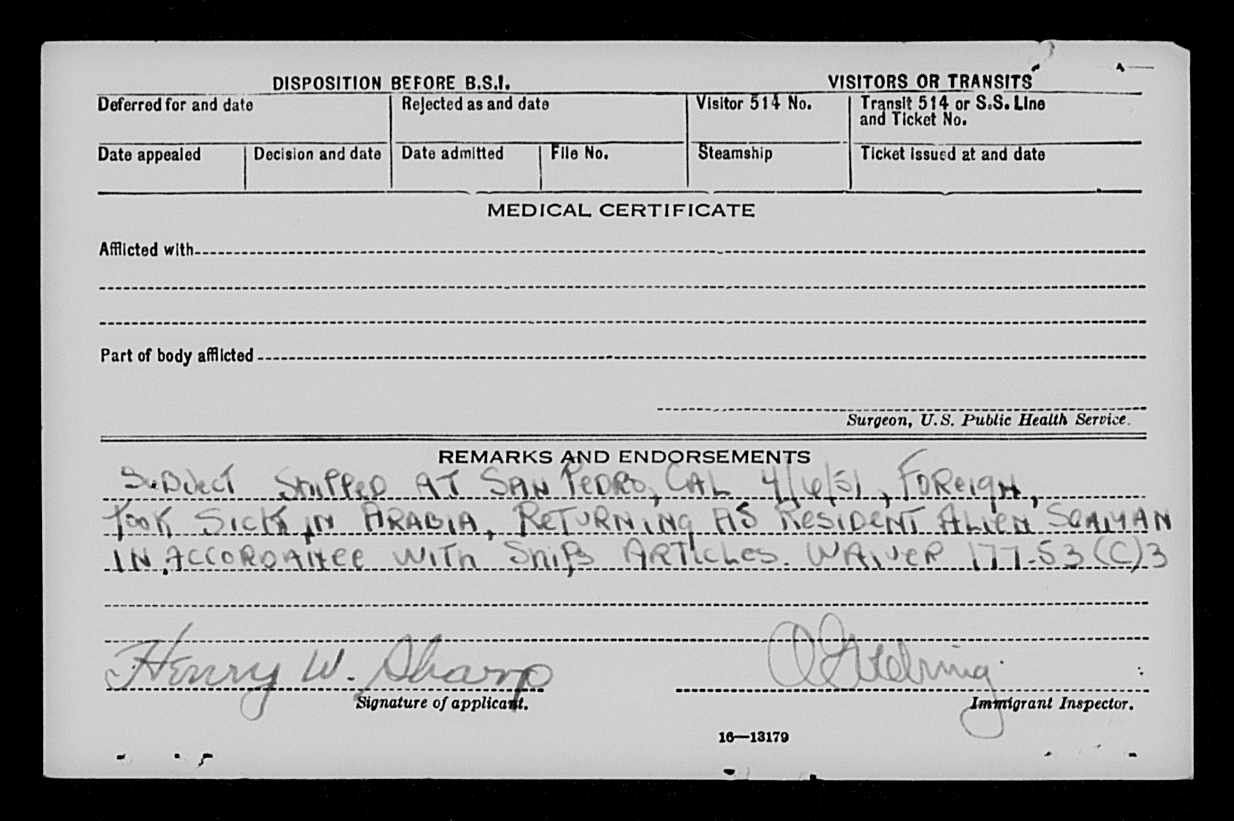 DISPOSITION BEFORE B.S.I.
VISITORS OR TRANSITS
Deferred for and date
Rejected as and date
Visitor 514 No.
Transit 514 or S.S. Line
and Ticket No.
Date appealed
Decision and date
Date admitted
File No.
Steamship
Ticket issued at and date
MEDICAL CERTIFICATE
Afflicted with
Part of body afflicted
Surgeon, U.S. Public Health Service.
REMARKS AND ENDORSEMENTS
SUBJECT SHIPPED AT SAN PEDRO, CAL 4/6/51, FOREIGN,
TOOK SICK IN ARABIA, RETURNING AS RESIDENT ALIEN SEAMAN
IN ACCORDANCE WITH SHIPS ARTICLES. WAIVER 177.53(C)3
Henry W. Sharp
Signature of applicant.
Immigrant Inspector.
16—13179